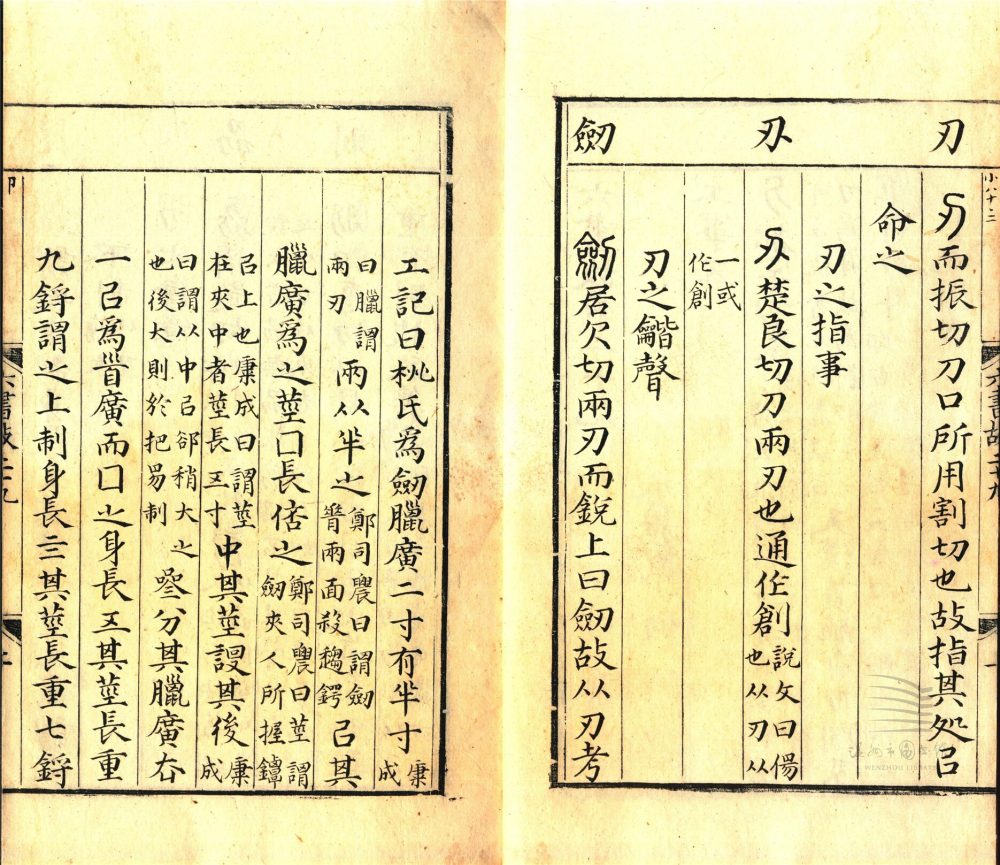 小八十三
六書故二十九
刃
刃而振切刀口所用割切也故指其処㠯
命之
刃之指事
刅
刅楚良切刀兩刃也通作創說文曰傷
也从刃从
一或
作創
刃之龤聲
劒
劒居欠切兩刃而銳上曰劒故从刃考
工記曰桃氏爲劒臘廣二寸有半寸康
成
曰臘謂
兩刃
兩从半之鄭司農曰謂劒
脊兩面殺趨鍔
㠯其
臘廣爲之莖囗長倍之鄭司農曰莖謂
劒夾人所握鐔
㠯上也康成曰謂莖
在夾中者莖長五寸
中其莖設其後康
成
曰謂从中㠯郤稍大之
也後大則於把易制
叄分其臘廣去
一㠯爲首廣而囗之身長五其莖長重
九鋝謂之上制身長三其莖長重七鋝
六書故二十九
WENZHOU LIBRARY